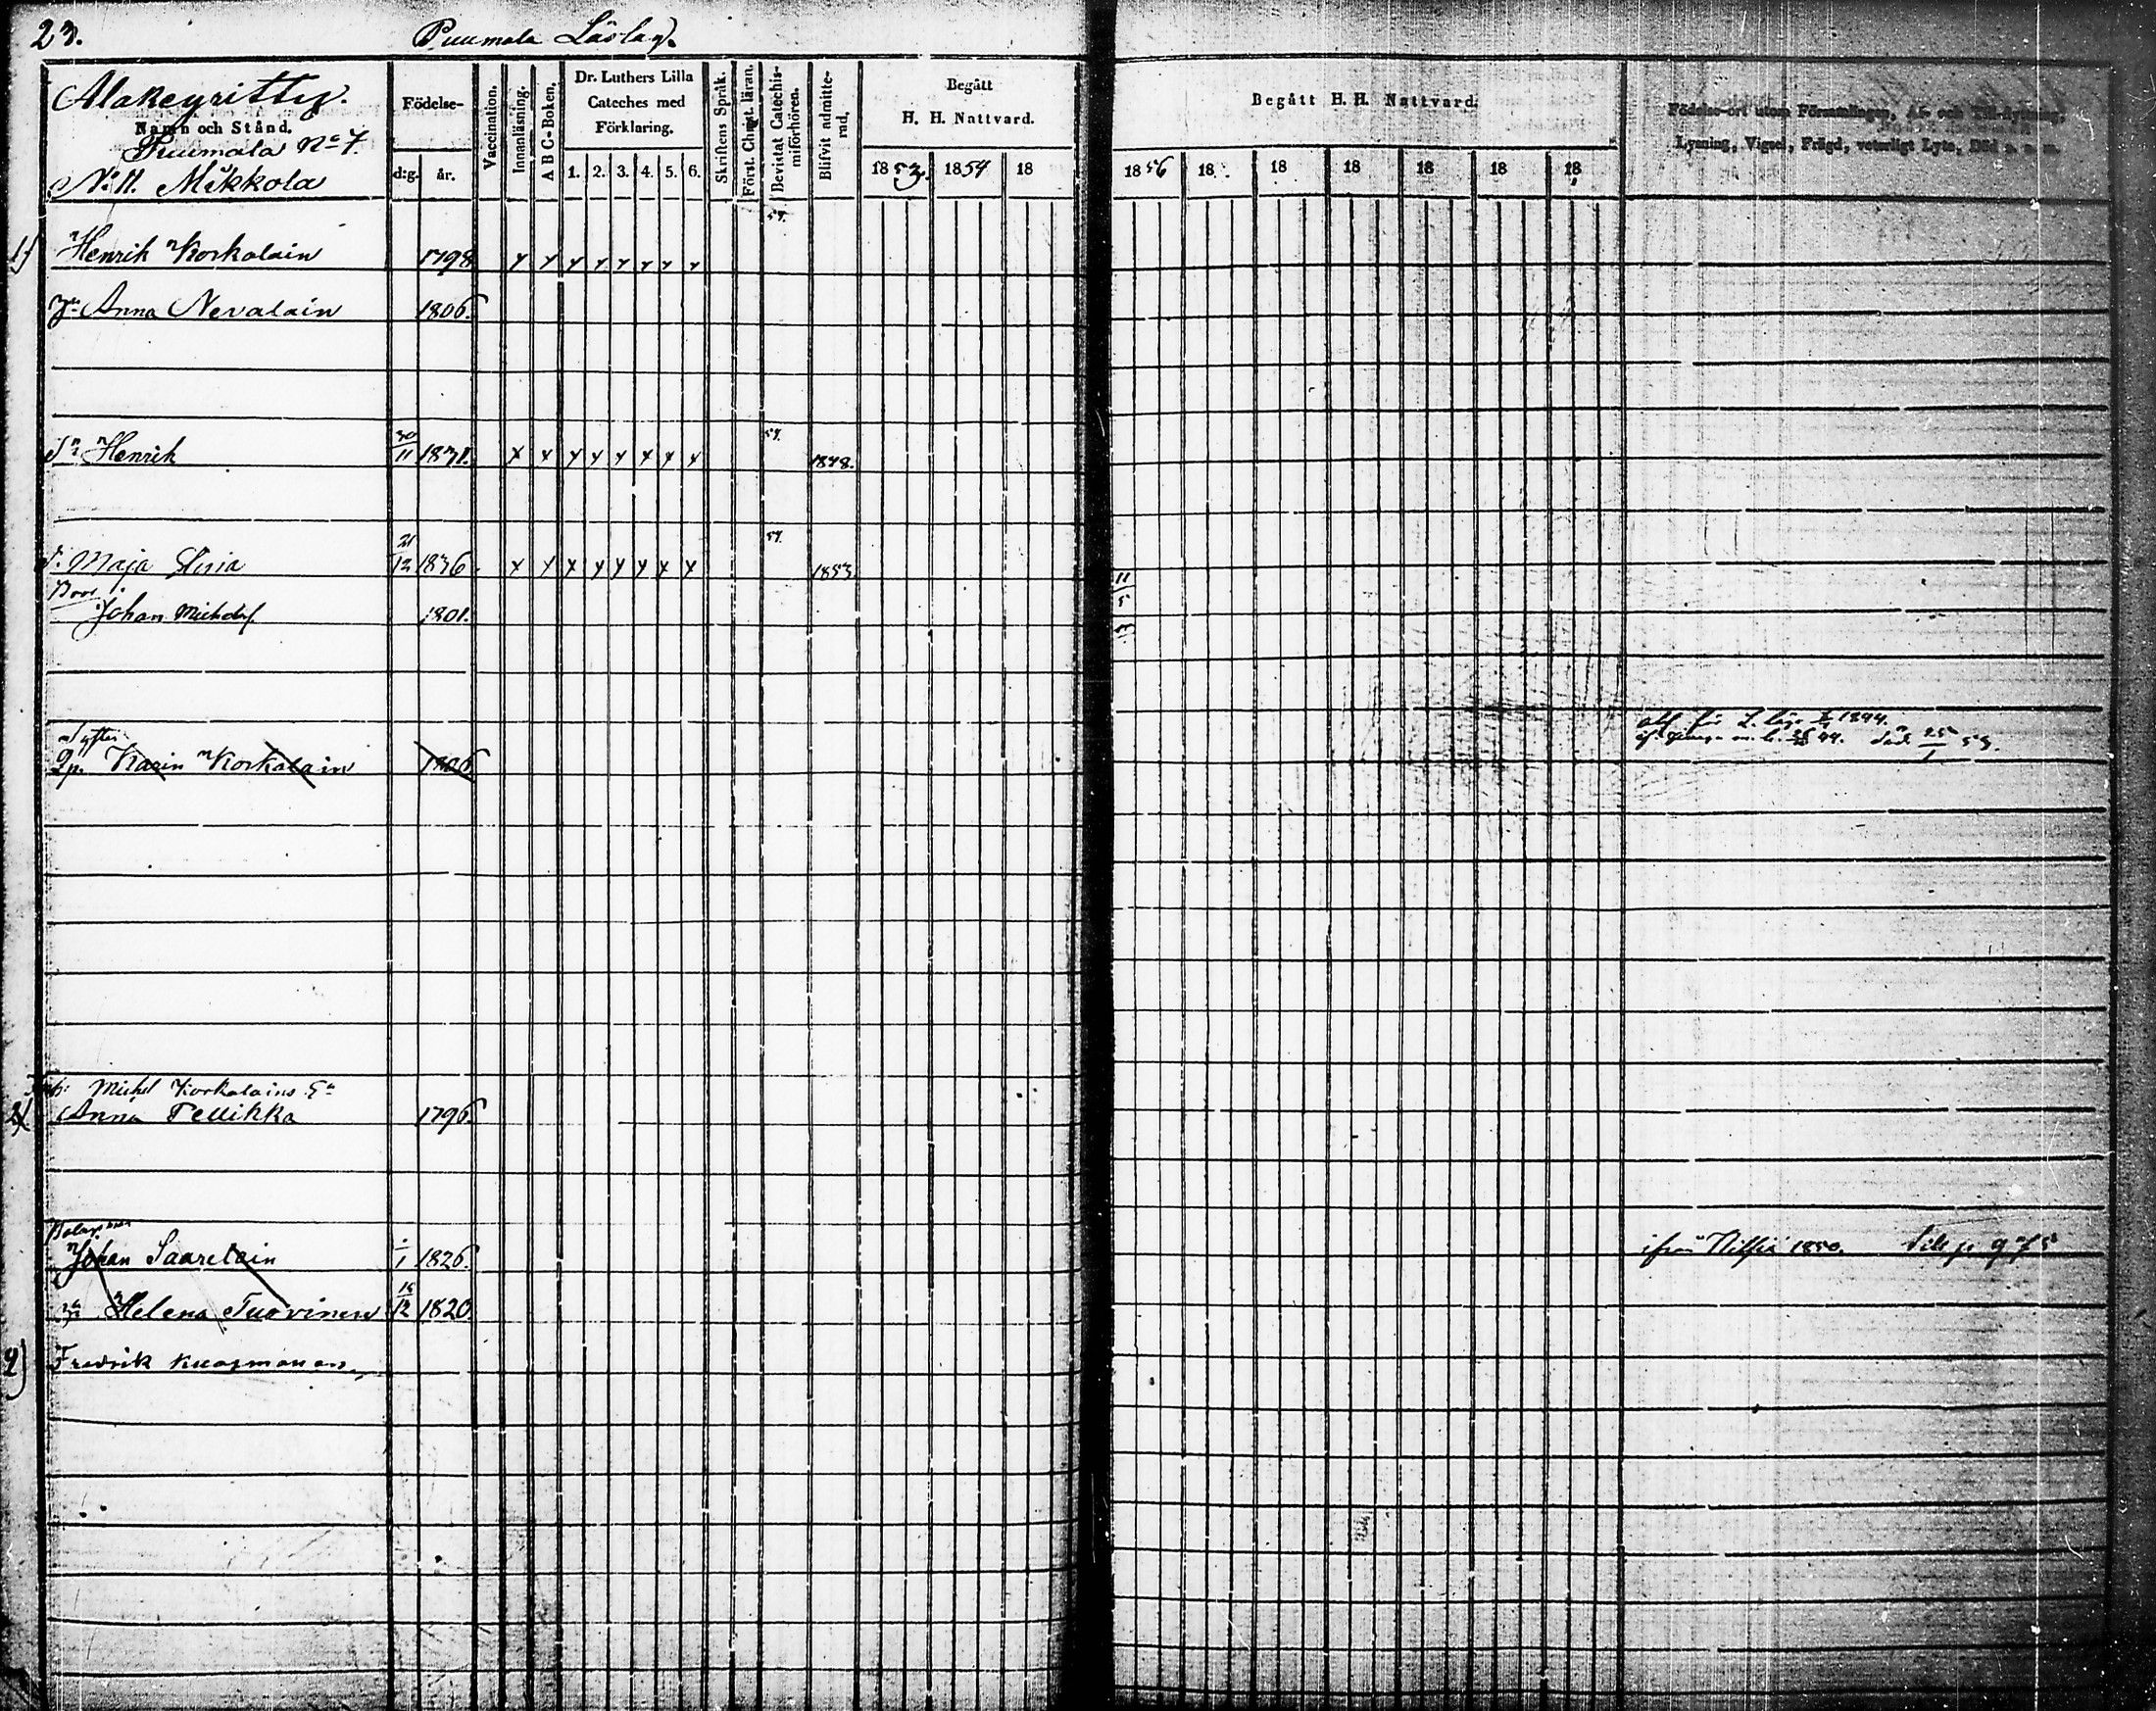 23.
Puumala Läslag.
Alakeyritty.
Namn och Stånd.
Puumala No 7.
No 11. Mikkola
Födelse-
d:g. år.
Vaccination.
Innanläsning.
A B C-Boken.
Dr. Luthers Lilla
Cateches med
Förklaring.
1. 2. 3. 4. 5. 6.
Skriftens Språk.
Först. Christ. läran.
Bevistat Catechis-
miförhören.
Blifvit admitte-
rad,
Begått
H. H. Nattvard.
1853. 1854 18
Begått H. H. Nattvard.
1856 18 18 18 18 18 18
Födelse-ort utom Församlingen, Af- och Till-flyttning,
Lysning, Vigsel, Frägd, veterligt Lyte, Död
1) Henrik Korkalain 1798 x x x x x x x x 54.
Anna Nevalain 1806.
Sn Henrik 30/11 1831. x x x x x x x x 54. 1848.
Maja 21/12 1836. x x x x x x x x 54. 1853. 11/5
Johan 1801.
1844.
44. död 25/1 53.
Karin Korkalain 1806
Michel Korkalains
2) Anna Tellikka 1796.
Johan Saarelain 1826. ifrån Nilsiä 1850. 975
Helena Tuovinen 12 1820.
2) Fredrik